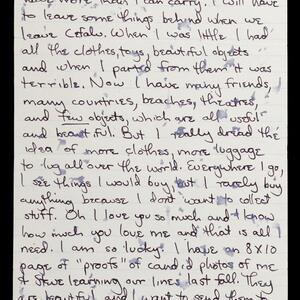 have more than I can carry. I will have
to leave some things behind when we
leave Cefalu. When I was little I had
all the clothes, toys, beautiful objects
and when I parted from them it was
terrible. Now I have many friends,
many countries, beaches, theatres,
and few objects, which are all useful
and beautiful. But I really dread the
idea of more clothes, more luggage
to lug all over the world. Everywhere I go,
I see things I would buy but I rarely buy
anything because I don't want to collect
stuff. Oh I love you so much and I know
how much you love me and that is all
need. I am so lucky. I have an 8x10
page of "proofs" of candid photos of me
& Steve learning our lines last fall. They
are beautiful and I want to send them